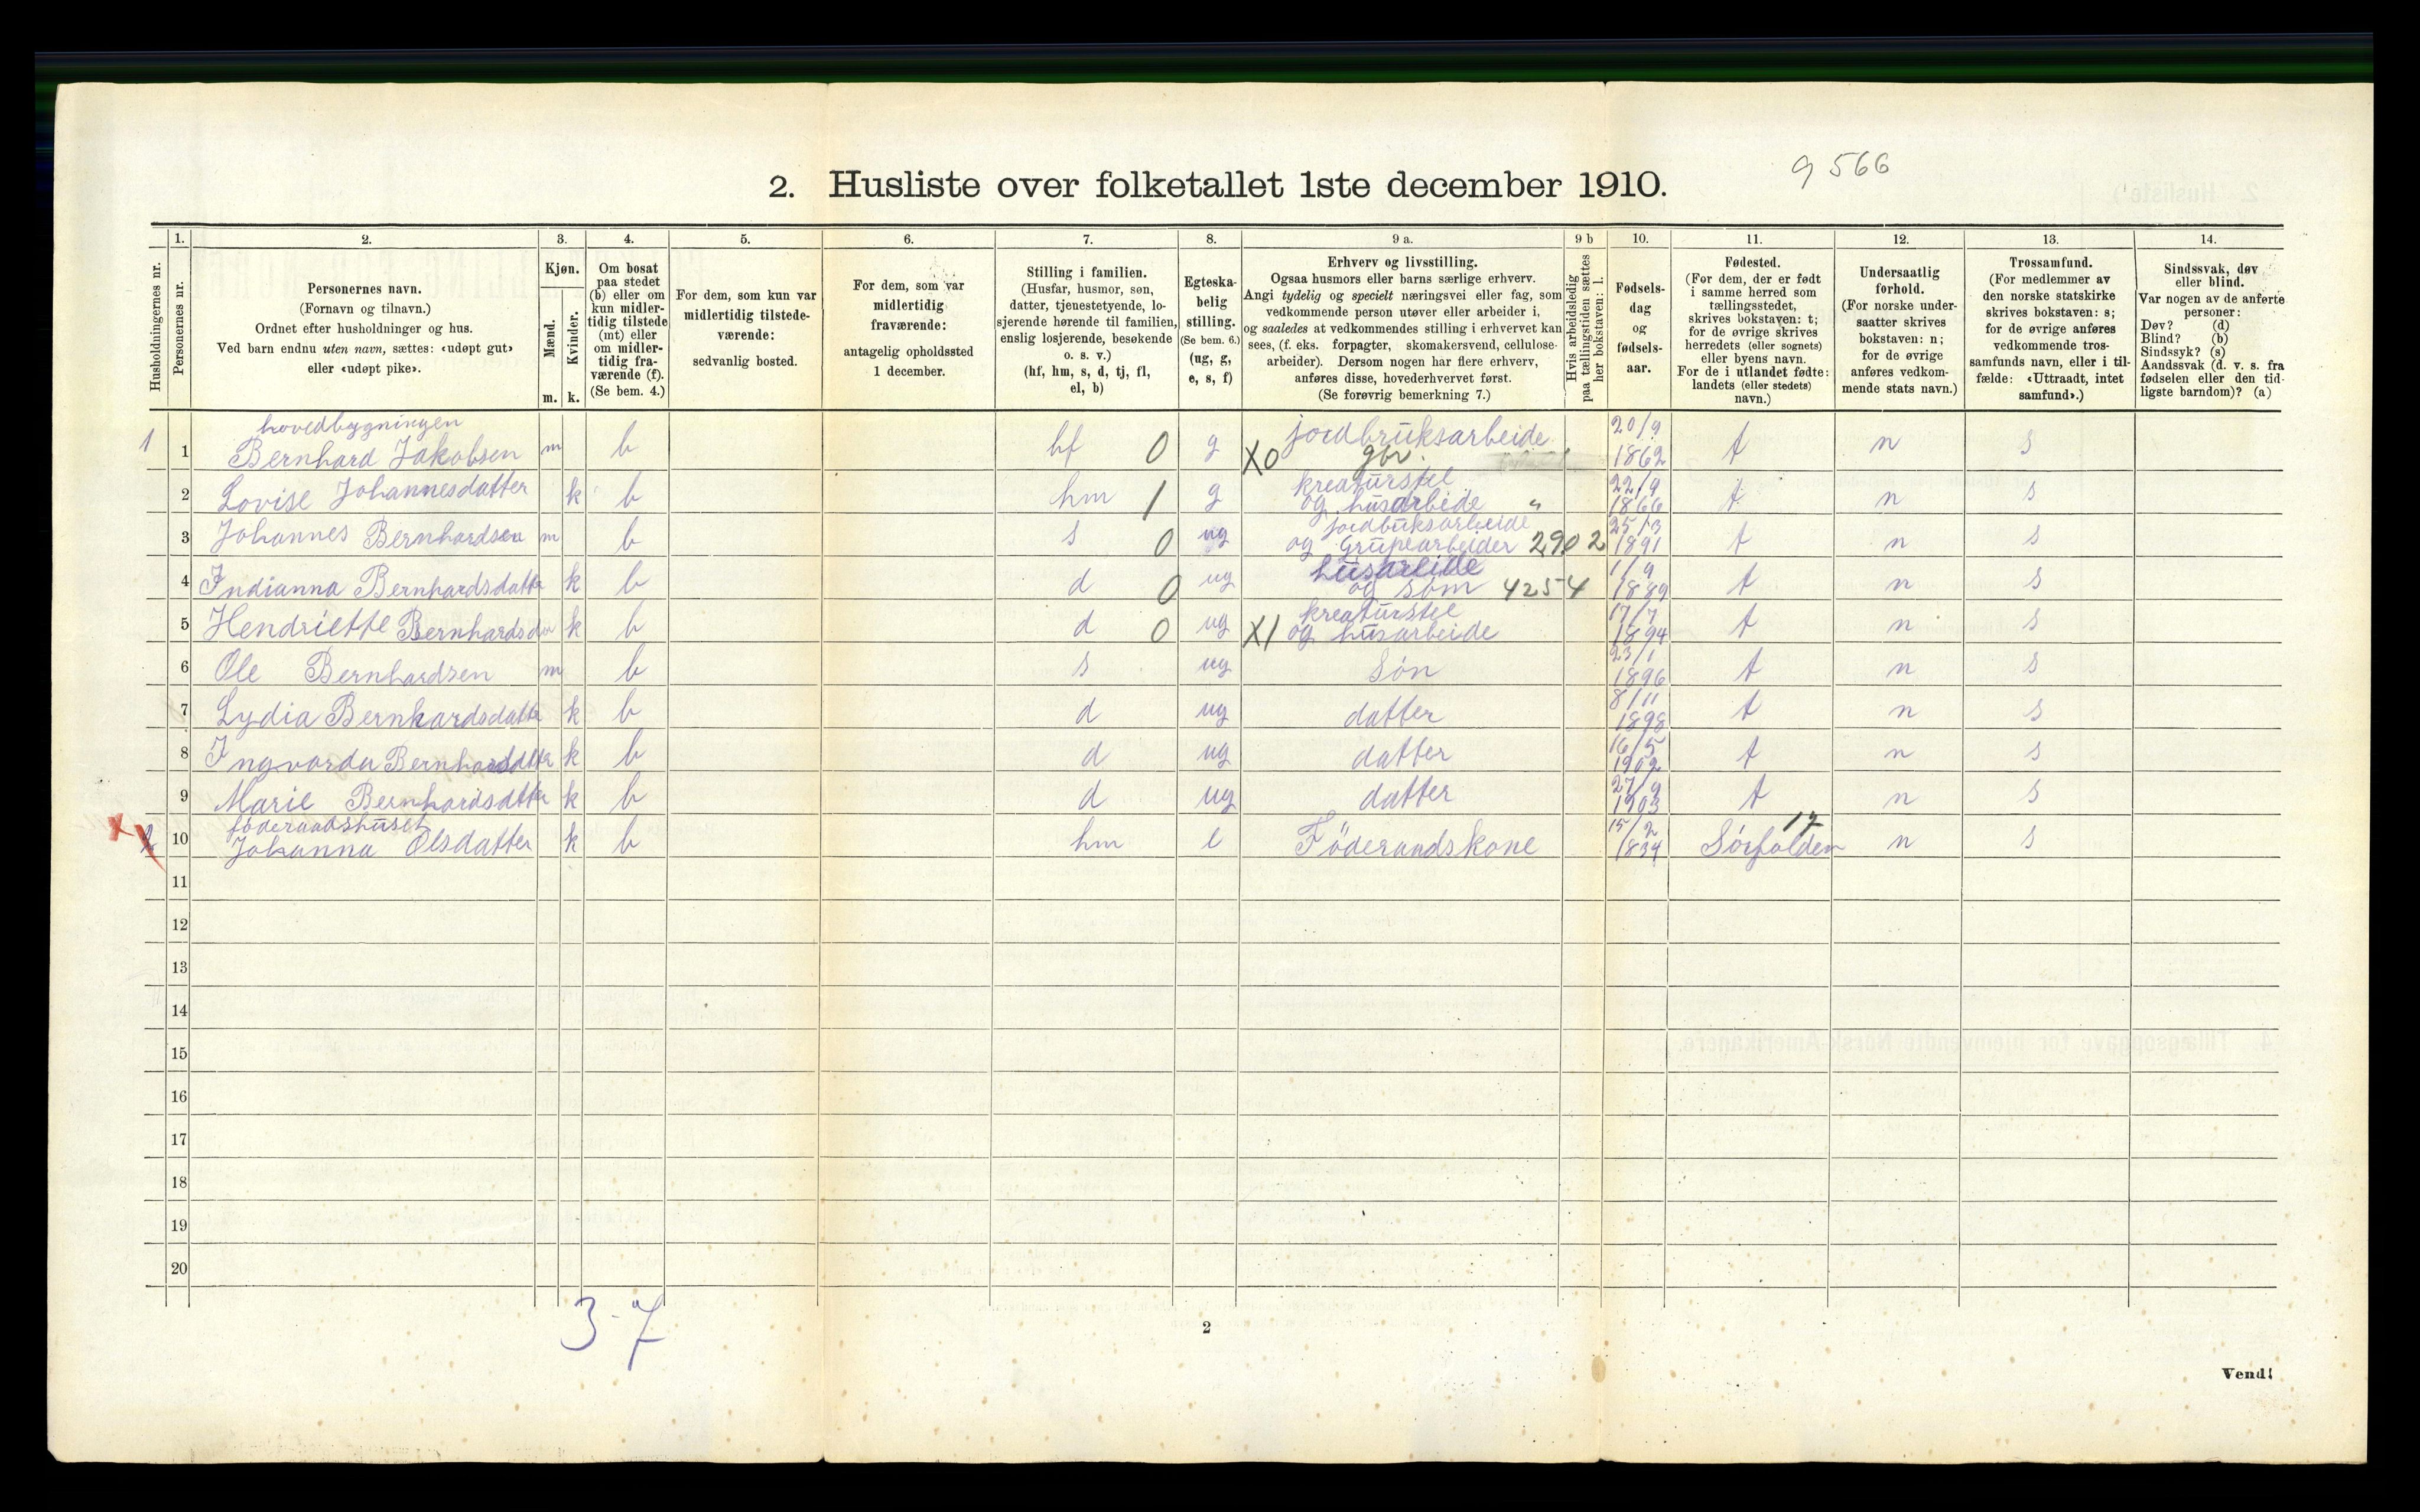 2. Husliste over folketallet 1ste december 1910.
9566
Husholdningernes nr.
1.
Personernes nr.
2.
Personernes navn.
(Fornavn og tilnavn.)
Ordnet efter husholdninger og hus.
Ved barn endnu uten navn, sættes: «udøpt gut»
eller «udøpt pike».
3.
Kjøn.
Mænd.
Kvinder.
m. k.
4.
Om bosat
paa stedet
(b) eller om
kun midler-
tidig tilstede
(mt) eller
om midler-
tidig fra-
værende (f).
(Se bem. 4.)
5.
For dem, som kun var
midlertidig tilstede-
værende:
sedvanlig bosted.
6.
For dem, som var
midlertidig
fraværende:
antagelig opholdssted
1 december.
7.
Stilling i familien.
(Husfar, husmor, søn,
datter, tjenestetyende, lo-
sjerende hørende til familien,
enslig losjerende, besøkende
o. s. v.)
(hf, hm, s, d, tj, fl,
el, b)
8.
Egteska-
belig
stilling.
(Se bem. 6.)
(ug, g,
e, s, f)
9 a.
Erhverv og livsstilling.
Ogsaa husmors eller barns særlige erhverv.
Angi tydelig og specielt næringsvei eller fag, som
vedkommende person utøver eller arbeider i,
og saaledes at vedkommendes stilling i erhvervet kan
sees, (f. eks. forpagter, skomakersvend, cellulose-
arbeider). Dersom nogen har flere erhverv,
anføres disse, hovederhvervet først.
(Se forøvrig bemerkning 7.)
9 b
Hvis arbeidsledig
paa tællingstiden sættes
her bokstaven: l.
10.
Fødsels-
dag
og
fødsels-
aar.
11.
Fødested.
(For dem, der er født
i samme herred som
tællingsstedet,
skrives bokstaven: t;
for de øvrige skrives
herredets (eller sognets)
eller byens navn.
For de i utlandet fødte:
landets (eller stedets)
navn.)
12.
Undersaatlig
forhold.
(For norske under-
saatter skrives
bokstaven: n;
for de øvrige
anføres vedkom-
mende stats navn.)
13.
Trossamfund.
(For medlemmer av
den norske statskirke
skrives bokstaven: s;
for de øvrige anføres
vedkommende tros-
samfunds navn, eller i til-
fælde: «Uttraadt, intet
samfund».)
14.
Sindssvak, døv
eller blind.
Var nogen av de anførte
personer:
Døv? (d)
Blind? (b)
Sindssyk? (s)
Aandssvak (d. v. s. fra
fødselen eller den tid-
ligste barndom)? (a)
hovedbygningen
1 1 Bernhard Jakobsen m b hf 0 g X0 jordbruksarbeide gbr. 20/9 1862 t n s
2 Lovise Johannesdatter k b hm 1 g kreaturstel og husarbeide " 22/9 1866 t n s
3 Johannes Bernhardsen m b s 0 ug jordbruksarbeide og Grupearbeider 2902 25/3 1891 t n s
4 Indianna Bernhardsdatter k b d 0 ug husarbeide og søm 4254 1/9 1889 t n s
5 Hendriette Bernhardsdtr k b d 0 ug X1 kreaturstel og husarbeide 17/7 1894 t n s
6 Ole Bernhardsen m b s ug Søn 23/1 1896 t n s
7 Lydia Bernhardsdatter k b d ug datter 8/11 1898 t n s
8 Ingvarda Bernhardsdatter k b d ug datter 16/5 1902 t n s
9 Marie Bernhardsdatter k b d ug datter 27/9 1903 t n s
føderaadshuset
x 2 10 Johanna Olsdatter k b hm e Föderaadskone 15/2 1834 Sörfolden 17 n s
11
12
13
14
15
16
17
18
19
20
3-7
2
Vend!